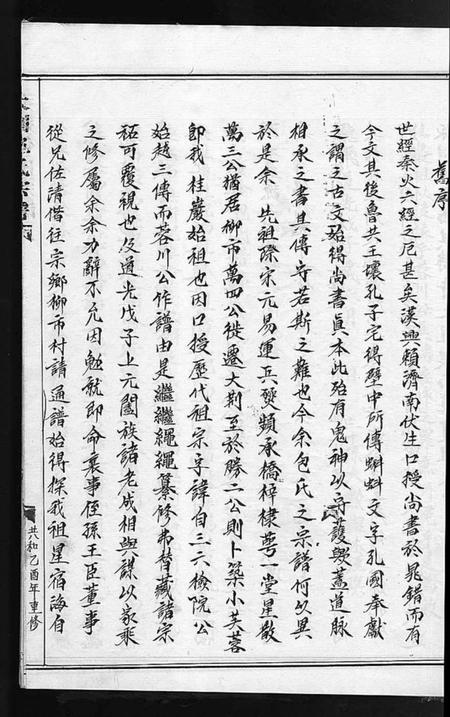 舊序
世經秦火六經之厄甚矣漢興賴濟南伏生口授尚書於晁錯而有
今文其後魯共王壞孔子宅得壁中所傳蝌蚪文字孔國奉獻
之謂之古文始得尚書真本此殆有鬼神以守護與蓋道脉
相承之書其傳守若斯之難也今余包氏之宗譜何以異
於是余 先祖際宋元易運兵燹頻承橋梓棣萼一堂星散
萬三公猶居柳市萬四公徙遷大荆至於勝二公則卜築小芙蓉
即我 桂巖始祖也因口授歷代祖宗字諱自三六檢院公
始越三傳而蓉川公作譜由是繼繼繩繩纂修弗替藏諸宗
祏可覆視也及道光戊子上元闔族諸老成相與謀以家乘
之修屬余余力辭不允因勉就即命襄事侄孫王臣董事
從兄佐清偕往宗鄉柳市村請 通譜始得探我祖星宿海自
共和乙酉年重修